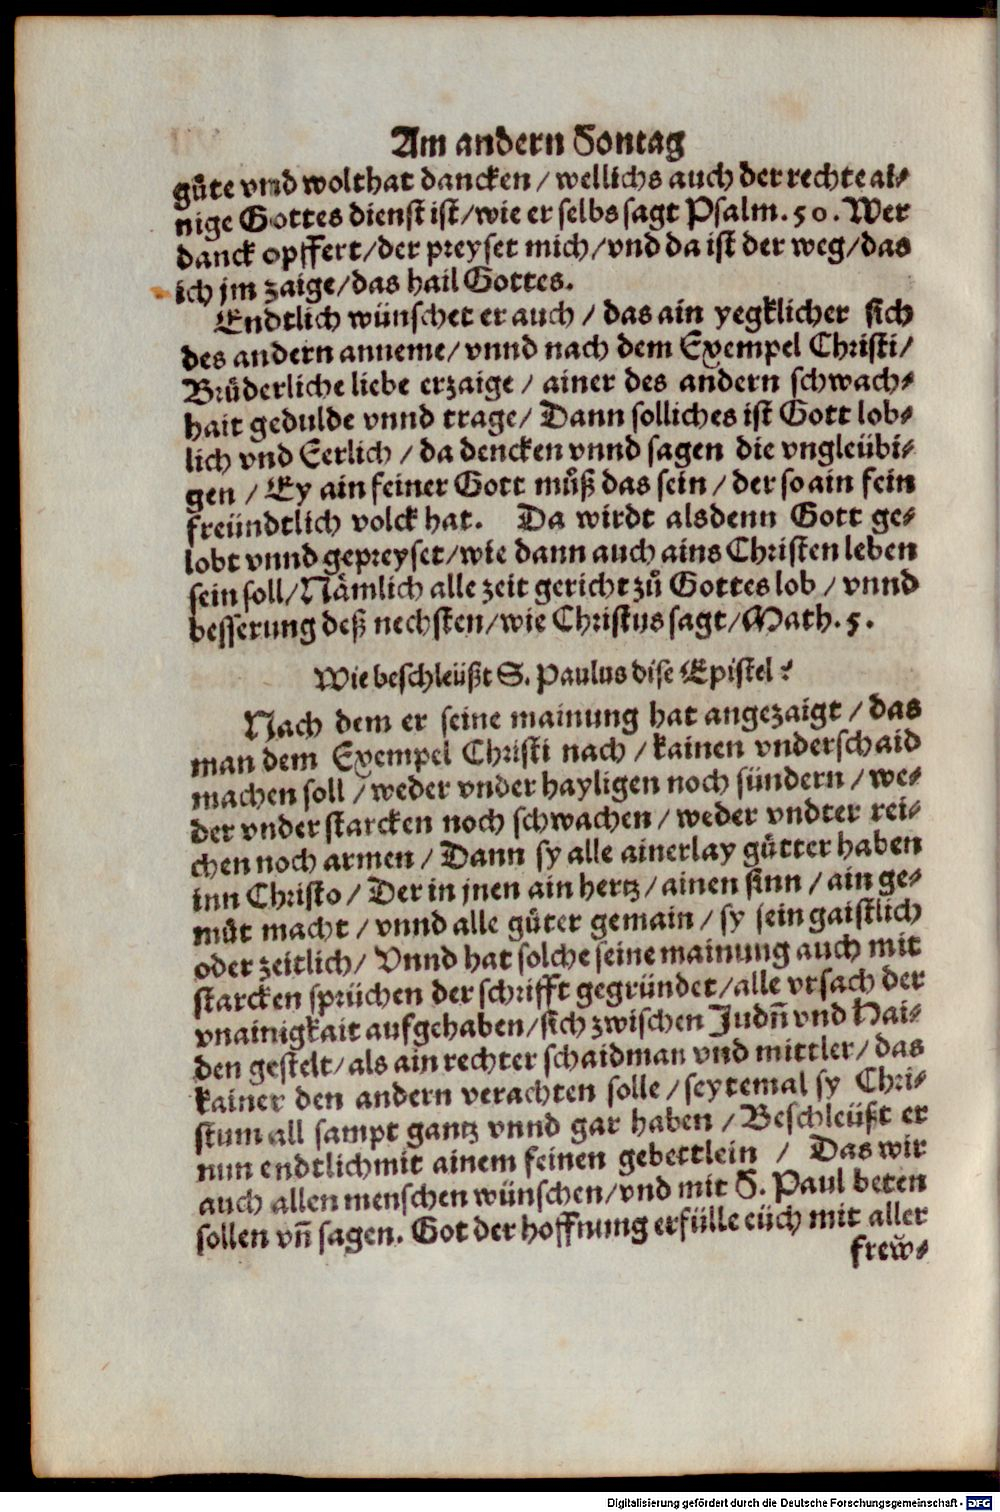 Am andern Sontag
guͤte vnnd wolthat dancken / wellichs auch der rechte ai⸗
nige Gottes dienst ist / wie er selbs sagt Psalm. 50. Wer
danck opffert / der preyset mich / vnd da ist der weg / das
ich jm zaige / das hail Gottes.
Endtlich wünschet er auch / das ain yegklicher sich
des andern anneme / vnnd nach dem Exempel Christi /
Bruͤderliche liebe erzaige / ainer des andern schwach⸗
hait gedulde vnnd trage / Dann solliches ist Gott lob⸗
lich vnd Eerlich / da dencken vnnd sagen die vngleübi⸗
gen / Ey ain feiner Gott muͦß das sein / der so ain fein
freündtlich volck hat. Da wirdt alsdenn Gott ge⸗
lobt vnnd gepreyset / wie dann auch ains Christen leben
sein soll / Naͤmlich alle zeit gericht zuͦ Gottes lob / vnnd
besserung deß nechsten / wie Christus sagt / Math. 5.
Wie beschleüßt S. Paulus dise Epistel?
Nach dem er seine mainung hat angezaigt / das
man dem Exempel Christi nach / kainen vnderschaid
machen soll / weder vnder hayligen noch sündern / we⸗
der vnder starcken noch schwachen / weder vndter rei⸗
chen noch armen / Dann sy alle ainerlay guͤtter haben
inn Christo / Der in jnen ain hertz / ainen sinn / ain ge⸗
muͤt macht / vnnd alle guͤter gemain / sy sein gaistlich
oder zeitlich / Vnnd hat solche seine mainung auch mit
starcken sprüchen der schrifft gegründet / alle vrsach der
vnainigkait aufgehaben / sich zwischen Judn̄ vnd Hai⸗
den gestelt / als ain rechter schaidman vnd mittler / das
kainer den andern verachten solle / seytemal sy Chri⸗
stum all sampt gantz vnnd gar haben / Beschleüßt er
nun endtlich mit ainem feinen gebettlein / Das wir
auch allen menschen wünschen / vnd mit S. Paul beten
sollen vn̄ sagen. Got der hoffnung erfülle eüch mit aller
frew⸗
Digitalisierung gefördert durch die Deutsche Forschungsgemeinschaft - DFG